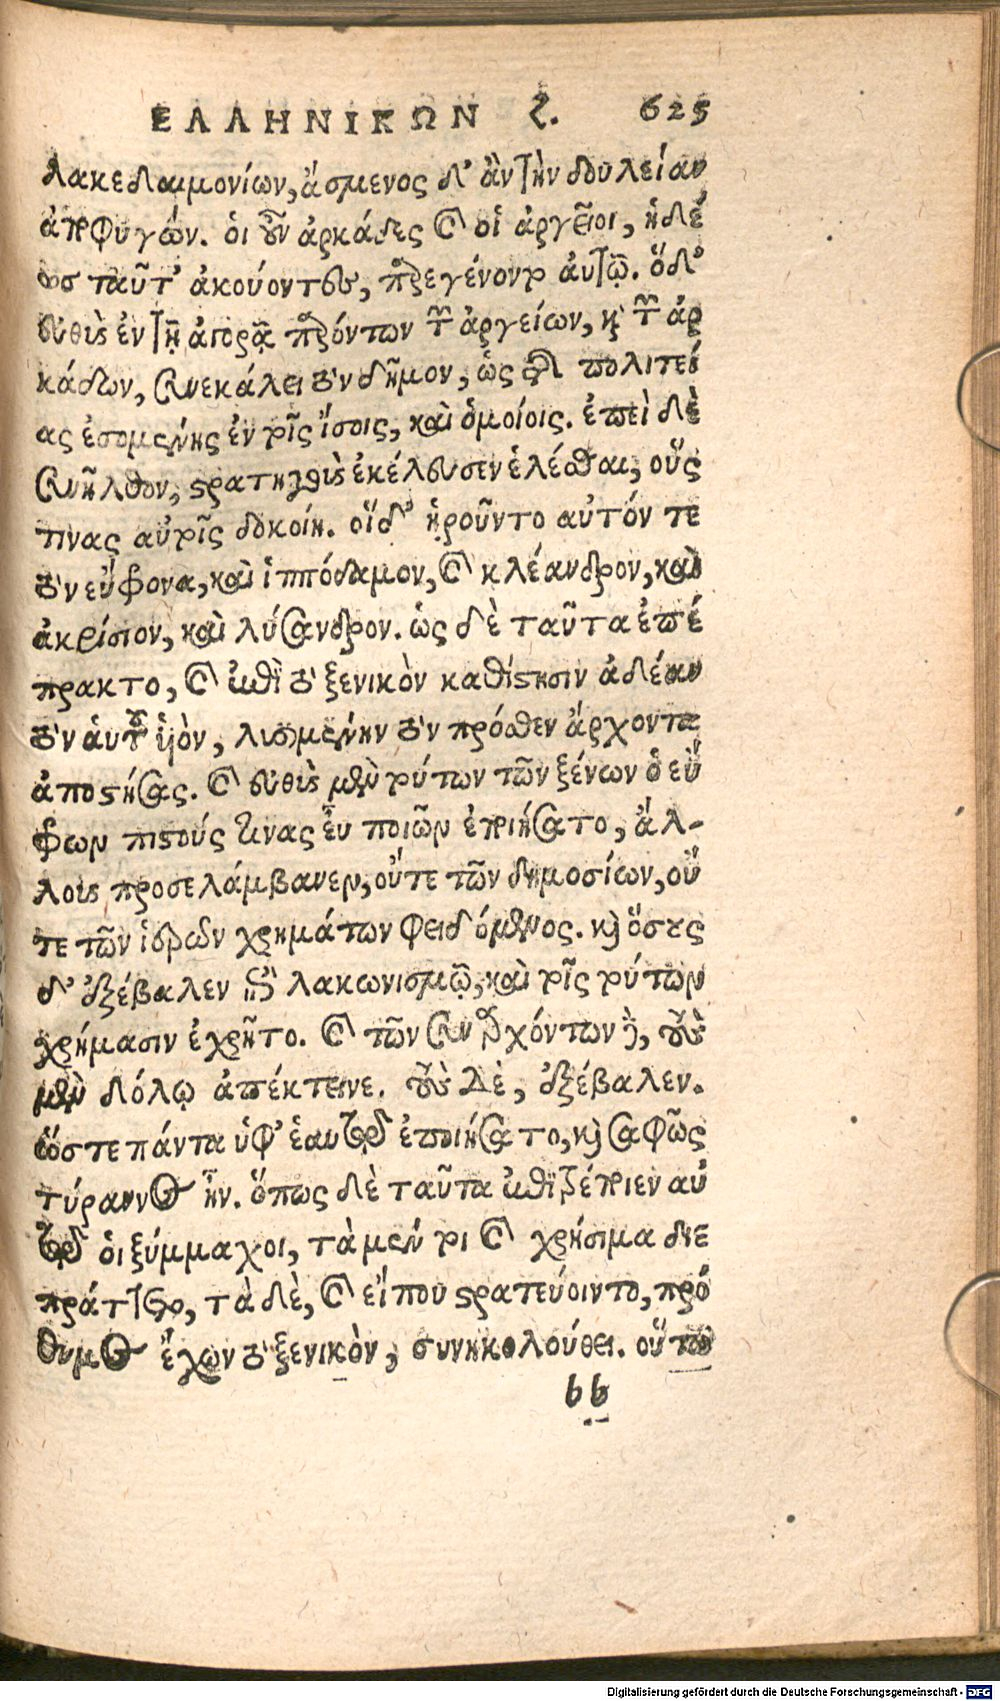 ΕΛΛΗΝΙΚΩΝ ζ. 625
λακεδαιμονίων, ἄσμενος δ' ἂν τὴν δουλείαν
ἀποφυγών. οἱ οὖν ἀρκάδες καὶ οἱ ἀργεῖοι, ἡδέ
ως ταῦτ' ἀκούοντες, παρεγένοντο αὐτῷ. ὁ δ'
εὐθὺς ἐν τῇ ἀγορᾷ παρόντων τῶν ἀργείων, καὶ τῶν ἀρ
κάδων, συνεκάλει τὸν δῆμον, ὡς τῆς πολιτεί
ας ἐσομένης ἐν τοῖς ἴσοις, καὶ ὁμοίοις. ἐπεὶ δὲ
συνῆλθον, στρατηγοὺς ἐκέλευσεν ἑλέσθαι, οὕς
τινας αὐτοῖς δοκοίη. οἱ δ' ᾑροῦντο αὐτόν τε
τὸν εὔφρονα, καὶ ἱππόδαμον, καὶ κλέανδρον, καὶ
ἀκρίσιον, καὶ λύσανδρον. ὡς δὲ ταῦτα ἐπέ
πρακτο, καὶ ἐπὶ τὸ ξενικὸν καθίστησιν ἀδέαν
τὸν αὑτοῦ υἱὸν, λισιμένην τὸν πρόσθεν ἄρχοντα
ἀποστήσας. καὶ εὐθὺς μὲν τούτων τῶν ξένων ὁ εὔ
φρων πιστούς τινας εὖ ποιῶν ἐποιήσατο, ἄλ-
λους προσελάμβανεν, οὔτε τῶν δημοσίων, οὔ
τε τῶν ἱερῶν χρημάτων φειδόμενος. καὶ ὅσους
δ' ἐξέβαλεν ἐπὶ λακωνισμῷ, καὶ τοῖς τούτων
χρήμασιν ἐχρῆτο. καὶ τῶν συναρχόντων δὲ, τοὺς
μὲν δόλῳ ἀπέκτεινε. τοὺς δὲ, ἐξέβαλεν.
ὥστε πάντα ὑφ' ἑαυτῷ ἐποιήσατο, καὶ σαφῶς
τύραννος ἦν. ὅπως δὲ ταῦτα ἐπιτρέποιεν αὐ
τῷ οἱ ξύμμαχοι, τὰ μέν τοι καὶ χρήσιμα διε
πράττετο, τὰ δὲ, καὶ εἴ που στρατεύοιντο, πρό
θυμος ἔχων τὸ ξενικὸν, συνηκολούθει. οὕτω
bb
Digitalisierung gefördert durch die Deutsche Forschungsgemeinschaft - DFG